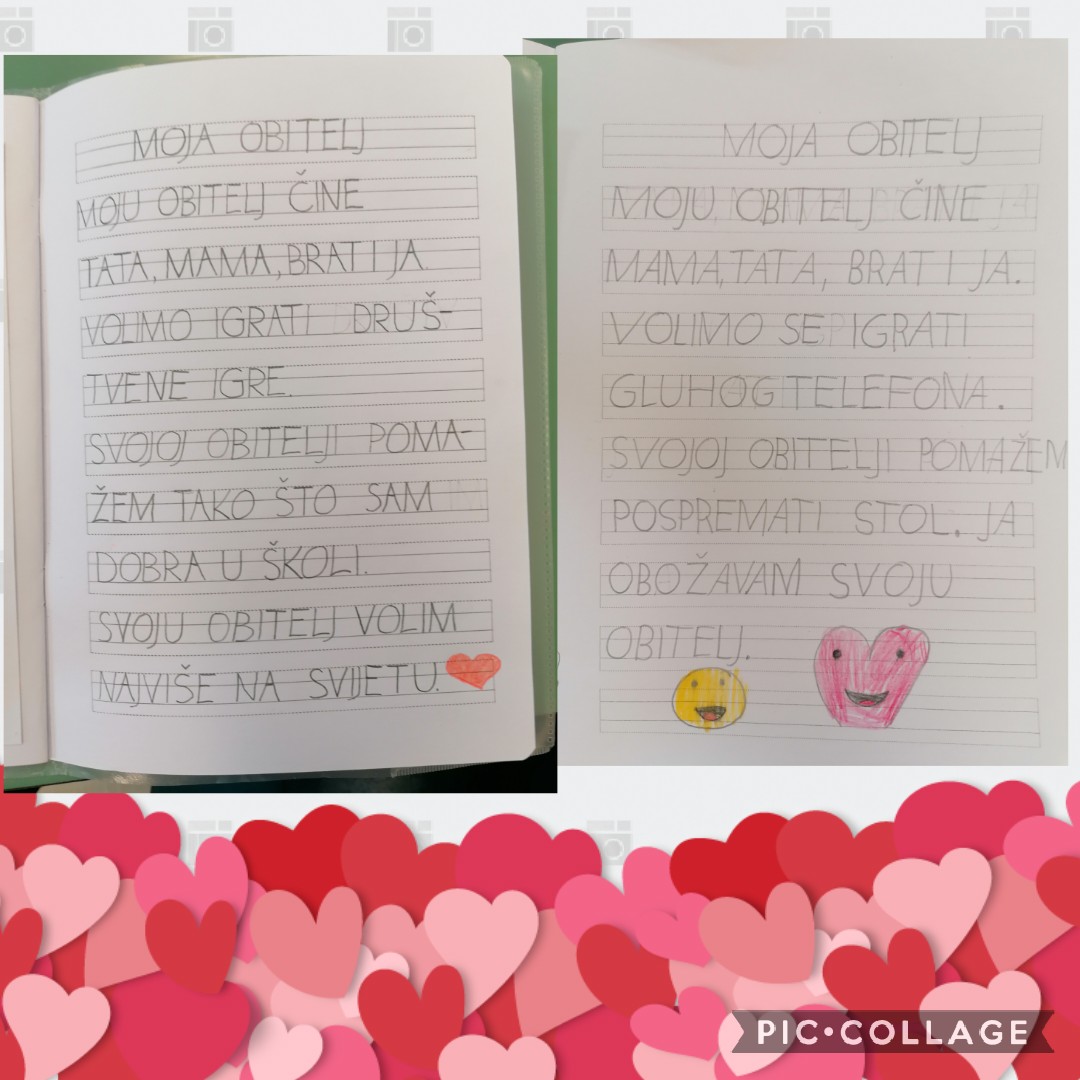 MOJA OBITELJ
MOJU OBITELJ ČINE
TATA, MAMA, BRAT I JA.
VOLIMO IGRATI DRUŠ-
TVENE IGRE.
SVOJOJ OBITELJI POMA-
ŽEM TAKO ŠTO SAM
DOBRA U ŠKOLI.
SVOJU OBITELJ VOLIM
NAJVIŠE NA SVIJETU.
MOJA OBITELJ
MOJU OBITELJ ČINE
MAMA, TATA, BRAT I JA.
VOLIMO SE IGRATI
GLUHOG TELEFONA.
SVOJOJ OBITELJI POMAŽEM
POSPREMATI STOL. JA
OBOŽAVAM SVOJU
OBITELJ.
PIC•COLLAGE